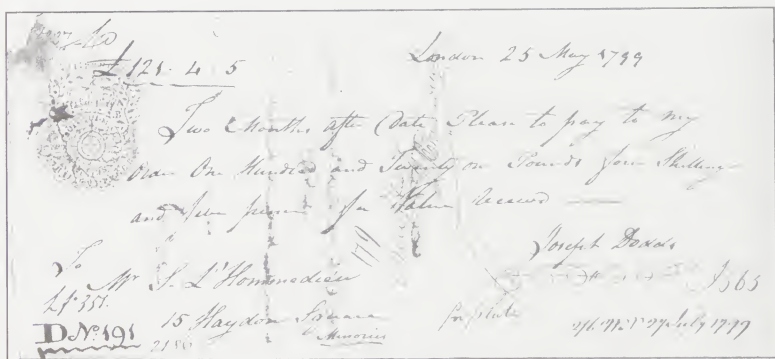 £121 - 4 - 5
London 25 May 1799
Two Months after Date Please to pay to my
Order One Hundred and Twenty one Pounds four Shillings
and five pence for Value Received
Joseph Dodds
To
Mr S. L'Hommedieu
179
15 Haydon Square
Minories
D No 191
July 1799